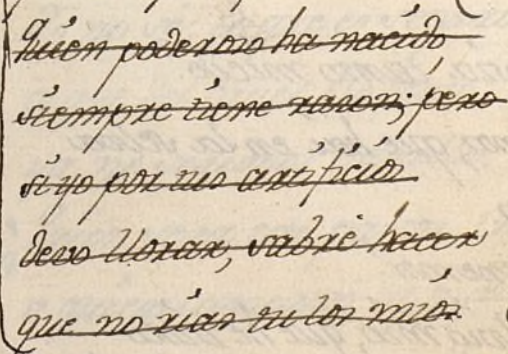 Quien poderoso ha nacido
siempre tiene razon; pero
si yo por tus artificios
devo llorar, sabré hacer
que no rias tu los mios.